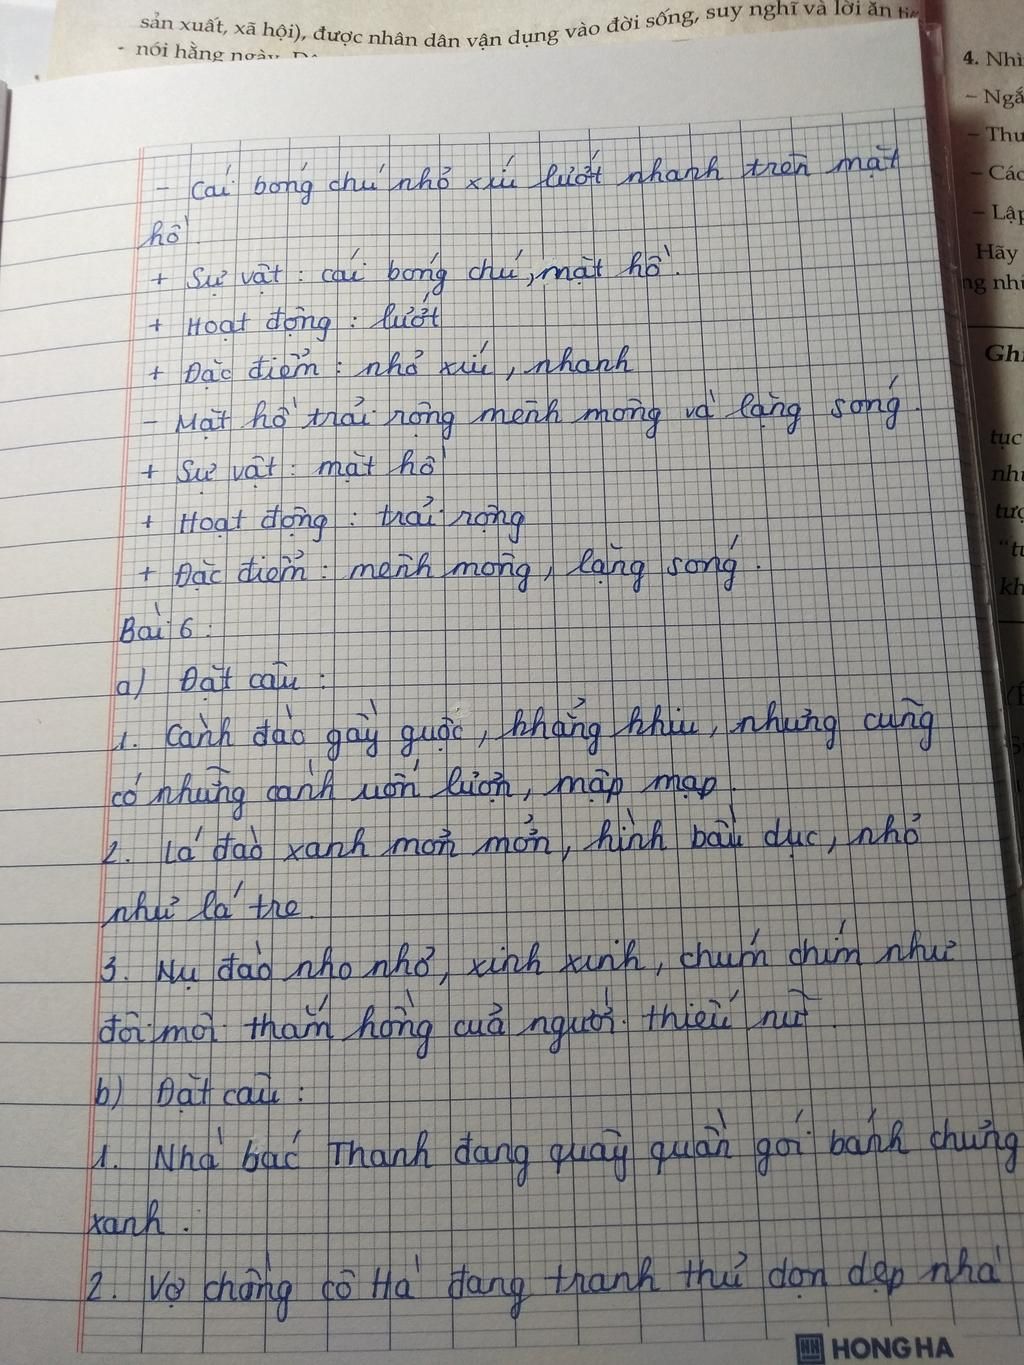 sản xuất, xã hội), được nhân dân vận dụng vào đời sống, suy nghĩ và lời ăn
- nói hằng ngày.
4. Nhì
- Ngắ
- Thu
- Các
- Lập
Hãy
ng nhi
Ghi
tục
như
tượ
"tu
kh
- Cái bóng chú nhỏ xíu lướt nhanh trên mặt
hồ.
+ Sự vật : cái bóng chú, mặt hồ.
+ Hoạt động : lướt
+ Đặc điểm : nhỏ xíu, nhanh
- Mặt hồ trải rộng mênh mông và lặng sóng.
+ Sự vật : mặt hồ
+ Hoạt động : trải rộng
+ Đặc điểm : mênh mông, lặng sóng.
Bài 6 :
a) Đặt câu :
1. Cành đào gầy guộc, khẳng khiu, nhưng cũng
có những cành uốn lượn, mập mạp.
2. Lá đào xanh mơn mởn, hình bầu dục, nhỏ
như lá tre.
3. Nụ đào nho nhỏ, xinh xinh, chúm chím như
đôi môi thắm hồng của người thiếu nữ.
b) Đặt câu :
1. Nhà bác Thanh đang quây quần gói bánh chưng
xanh.
2. Vợ chồng cô Hà đang tranh thủ dọn dẹp nhà
HH HONG HA